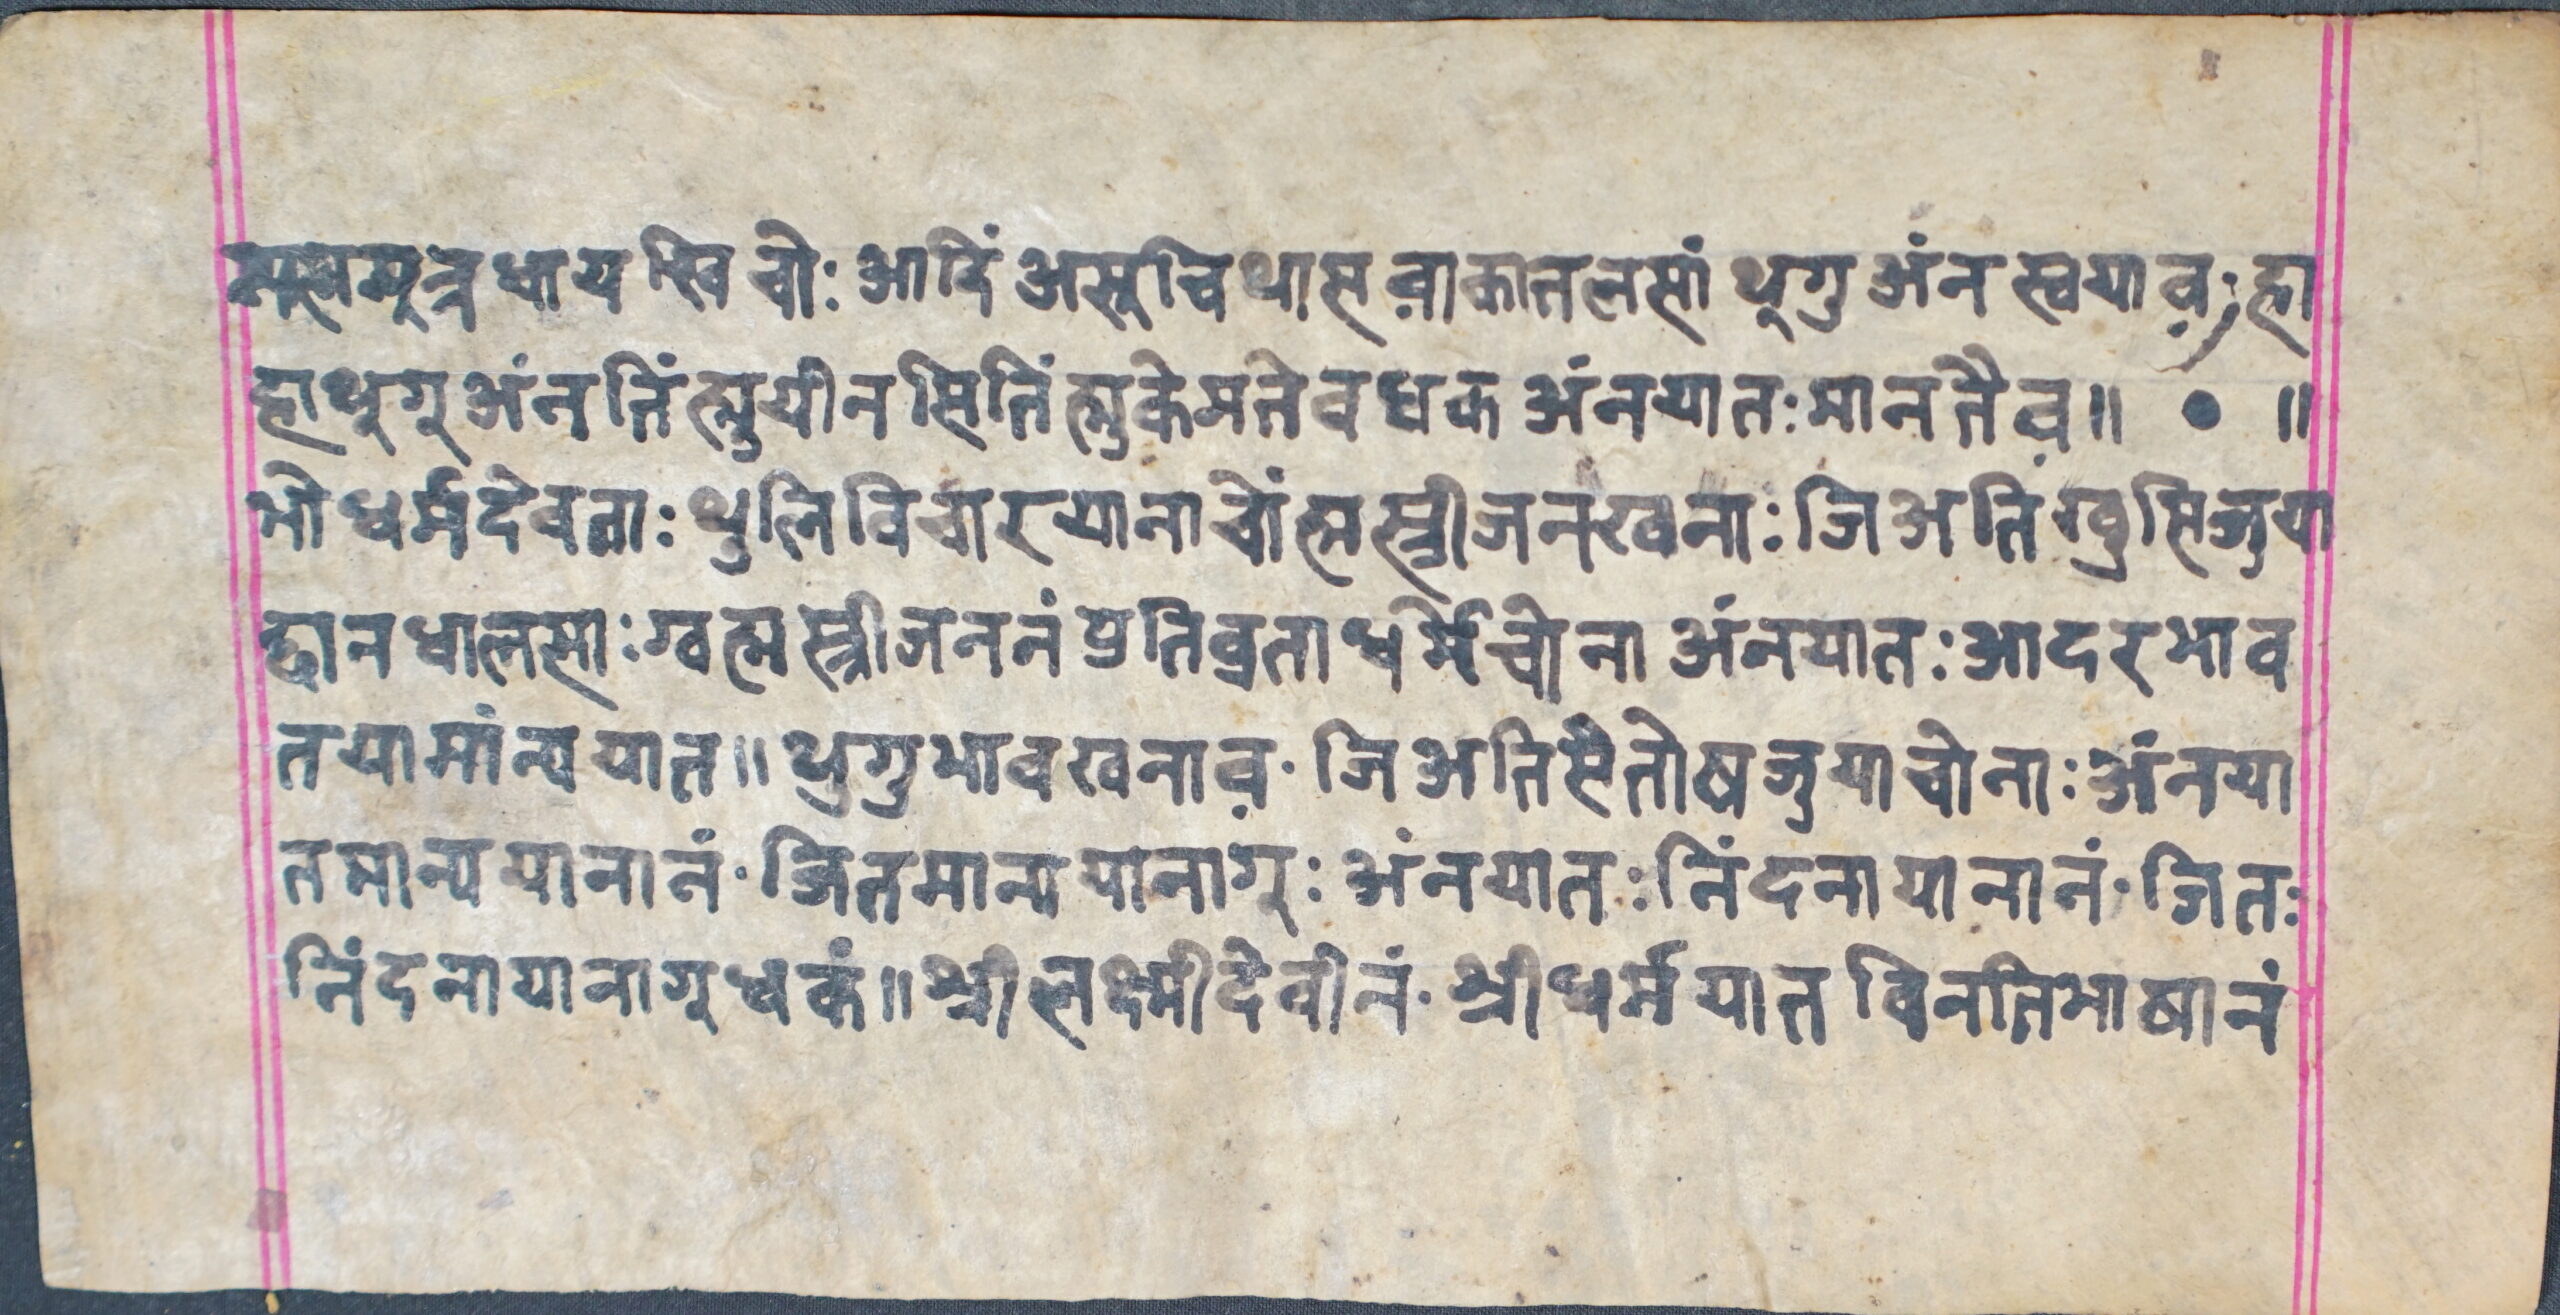 मलमूत्र धाय खि चोः आदिं असुचि थास वाकातलसां थ्गु अंन स्वयाव़ः ह्वा
ह्वाथ्गू अंन तिं ह्मुयीन सितिं ह्मुकेमतेव धक अंनयातः मानतैव़॥ ● ॥
भो धर्म्म देवताः थुलि विचारयाना चों ह्म स्त्रीजनखनाः जि अतिं खुसिजुया
ह्वानधालसाः ग्वह्म स्त्रीजननं प्रतिव्रता धर्म्मे चोना अंनयातः आदरभाव
तया मांन्ययात॥ थुगु भावखनाव़· जि अतिसंतोषजुया चोनाः अंनया
त मान्ययानानं· जित मान्ययानागूः अंनयातः निंदनायानानं· जितः
निंदनायानागू धकं॥ श्री लक्ष्मीदेवीनं· श्रीधर्म्मयात विनतिभाषानं